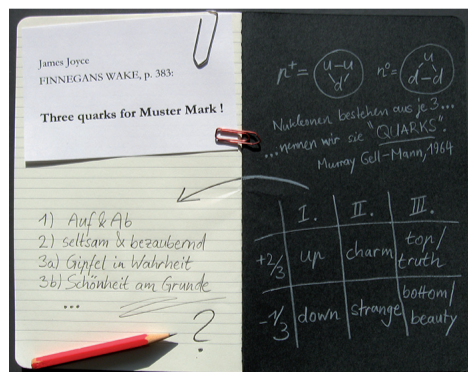 James Joyce
FINNEGANS WAKE, p. 383:
Three quarks for Muster Mark !
1) Auf & Ab
2) seltsam & bezaubernd
3a) Gipfel in Wahrheit
3b) Schönheit am Grunde
...
?
n⁺ = u-u d n⁰ = u d-d
Nukleonen bestehen aus je 3...
...nennen wir sie "QUARKS".
Murray Gell-Mann, 1964
I. II. III.
+2/3 up charm top/
truth
-1/3 down strange bottom/
beauty